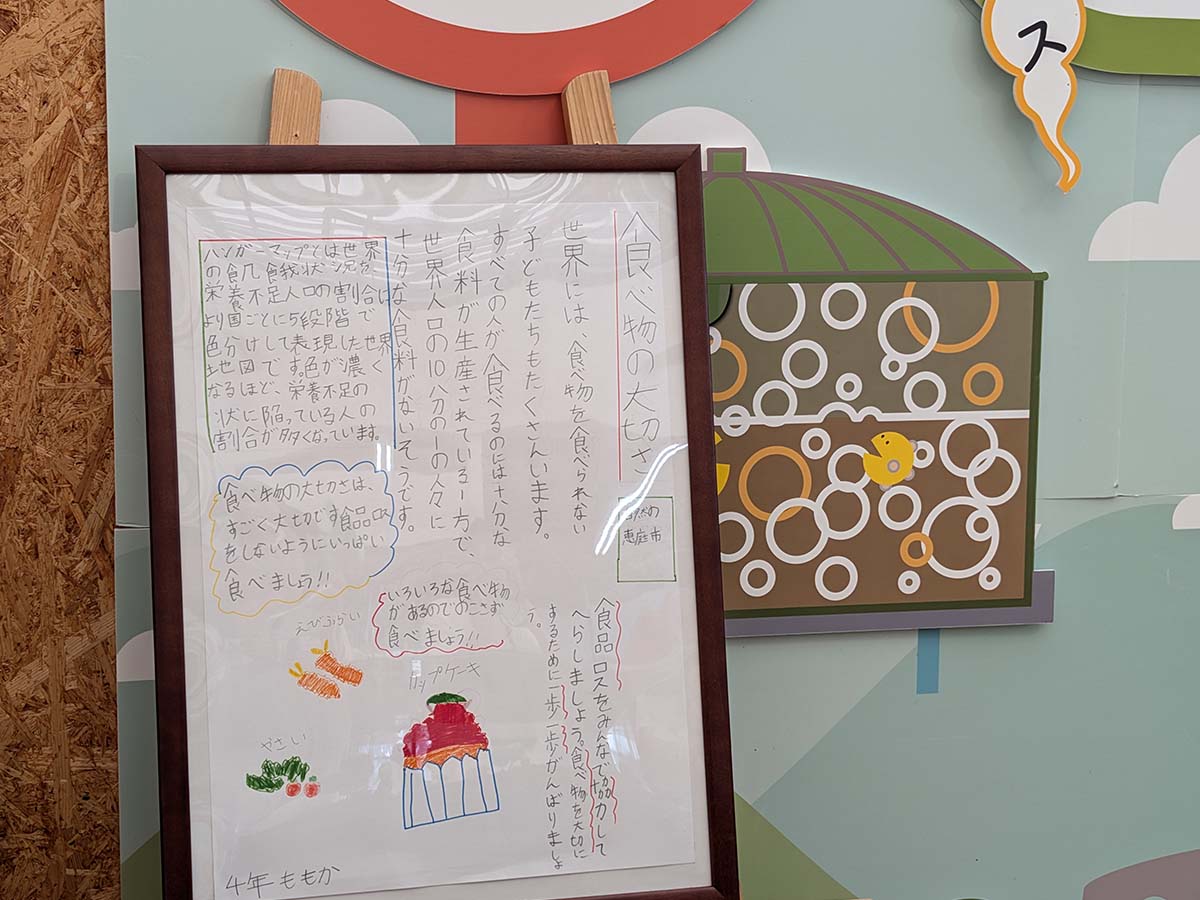 食べ物の大切さ
世界には、食べ物を食べられない
子どもたちもたくさんいます。
すべての人が食べるのには十分な
食料が生産されている一方で、
世界人口の10分の一の人々に
十分な食料がないそうです。
恵庭市
食品ロスをみんなで協力して
へらしましょう。食べ物を大切に
するために一歩一歩がんばりましょ
う。
ハンガーマップとは世界
の食几餓状況が
栄養不足人口の割合に
より国ごとに5段階で
色分けして表現した世界
地図です。色が濃く
なるほど、栄養不足の
状に陥っている人の
割合が多くなっています。
食べ物の大切さは、
すごく大切です食品ロス
をしないようにいっぱい
食べましょう!!
いろいろな食べ物
があるのでのこさず
食べましょう!!
えびふらい
カップケーキ
やさい
4年 ももか
ス